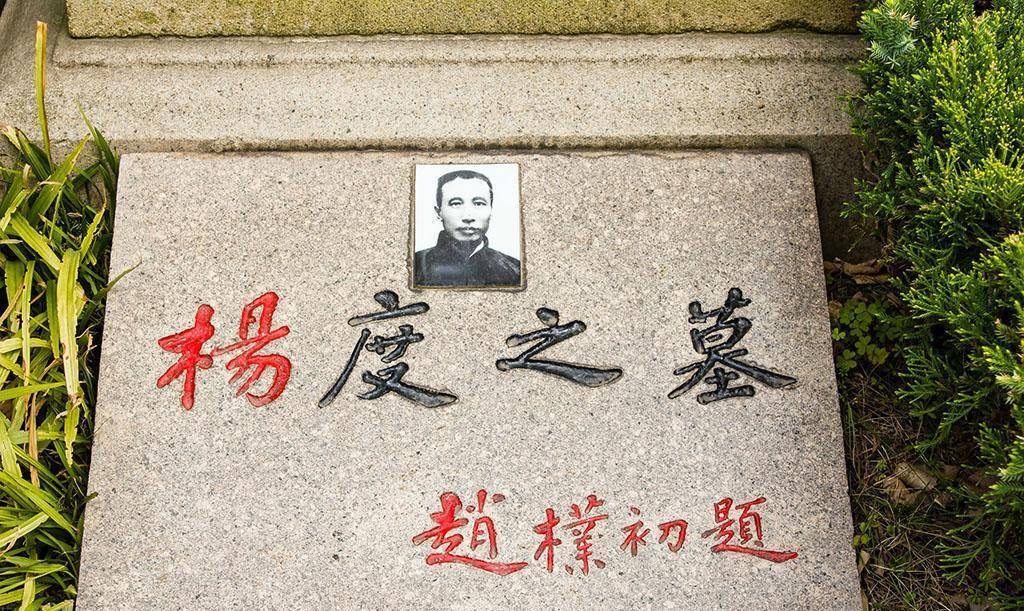 楊度之墓
趙樸初題